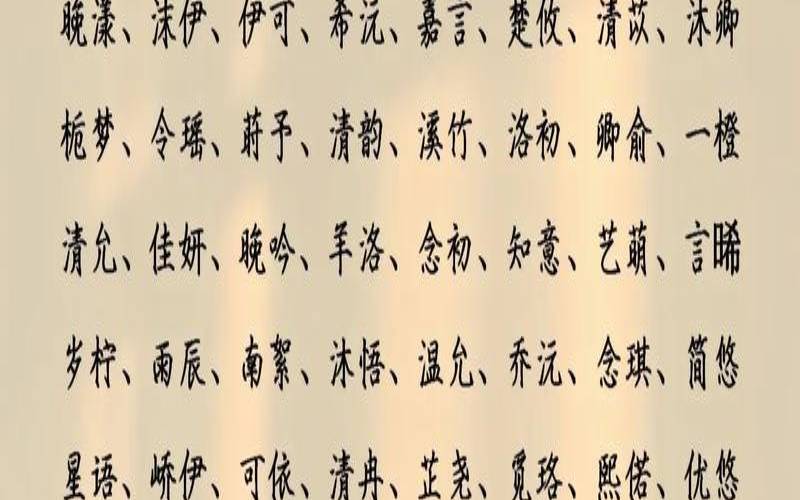 晚漾、沫伊、伊可、希沅、嘉言、楚攸、清苡、沐卿
栀梦、令瑶、莳予、清韵、溪竹、洛初、卿俞、一橙
清允、佳妍、晚吟、羊洛、念初、知意、艺萌、言晞
岁柠、雨辰、南絮、沐悟、温允、乔沅、念琪、简悠
星语、峤伊、可依、清冉、芷尧、觅珞、熙偌、优悠